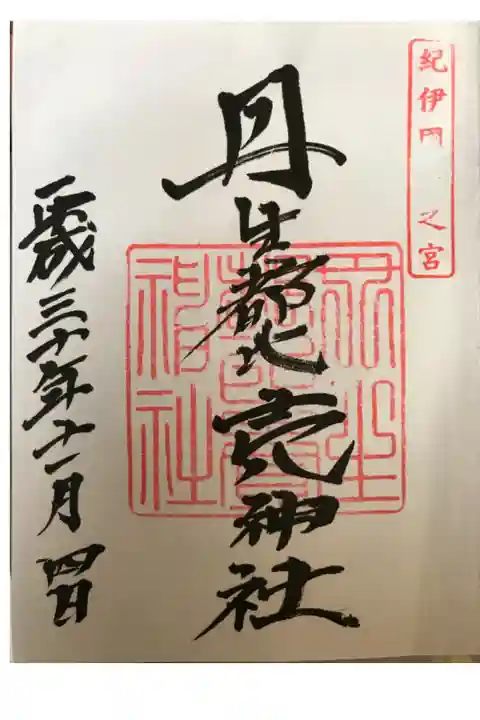 紀伊 之宮
丹生都比売神社
丹生
都比賣
神社
平成三十年十一月四日